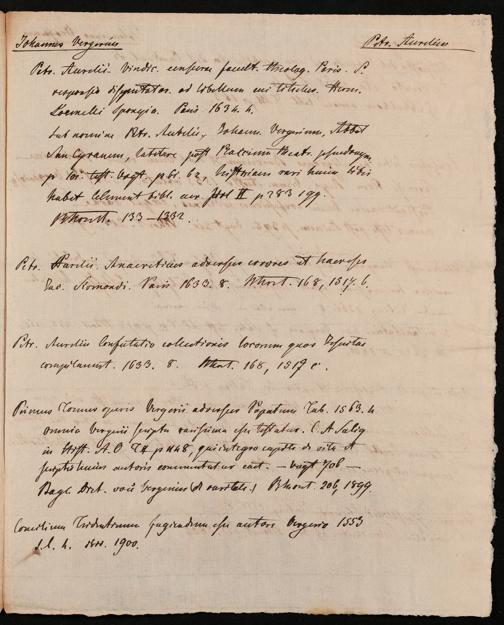 Johannes Vergerius Petr. Aurelius
Petr. Aurelii Vindic. censurae facult. theolog. Paris. P.
responsio ad libellum cui titulus. Herm.
Loemelii Spongia. Paris 1634. 4.
sub nomine Petr. Aurelii, Johann. Vergerium, Abbat
San Cyranum, latitare post theatr. pseudonym.
p. 62,
habet Clement bibl. cur. II p 283 199.
133—1332.
Petr. Aurelii. Anaereticus adversus errores et haereses
Jac. Sirmondi. Paris 1633. 8. 168, 1517. 6.
Petr. Aurelii Confutatio collectionis locorum quos Jesuitae
compilarunt. 1633. 8. 168, 1517 c.
Primus Tomus operis Vergerii adversus Papatum Tub. 1563. 4
omnia Vergerii scripta rarissima esse testatur. C. A. Salig
in Hist. A. C. p 1148, qui integro capite de vita et
scriptis huius autoris commentatur — Vogt 706 —
Bayle Dict. Vergerius (de raritate.) 206, 1899.
Concilium Tridentinum fugiendum esse autore Vergerio 1553
s.l. 4. 1900.